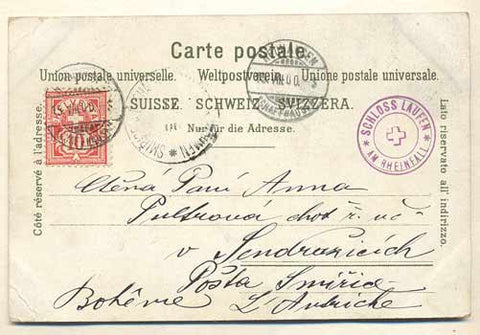 Carte postale.
Union postale universelle. Weltpostverein. Unione postale universale.
SUISSE. SCHWEIZ. SVIZZERA.
Nur für die Adresse.
Côté réservé à l'adresse.
Lato riservato all' indirizzo.
10
SCHLOSS LAUFEN
AM RHEINFALL
Ctěná Paní Anna
Pultrová chot ř. uč
v Sendražicích
Pošta Smiřic
Bohême L'Autriche